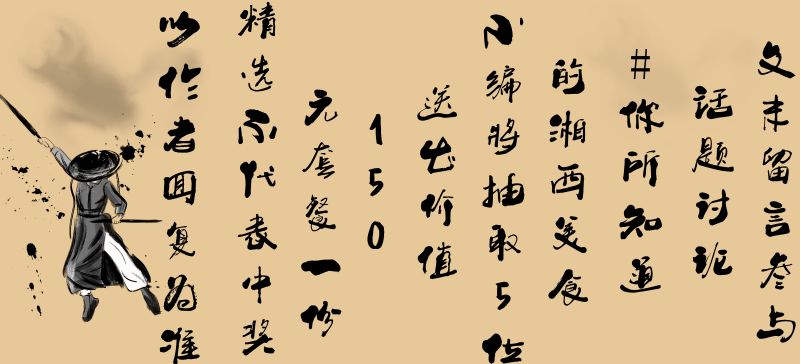 文末留言参与
话题讨论
#你所知道
的湘西美食
小编将抽取5位
送出价值
150
元套餐一份
精选不代表中奖
以作者回复为准